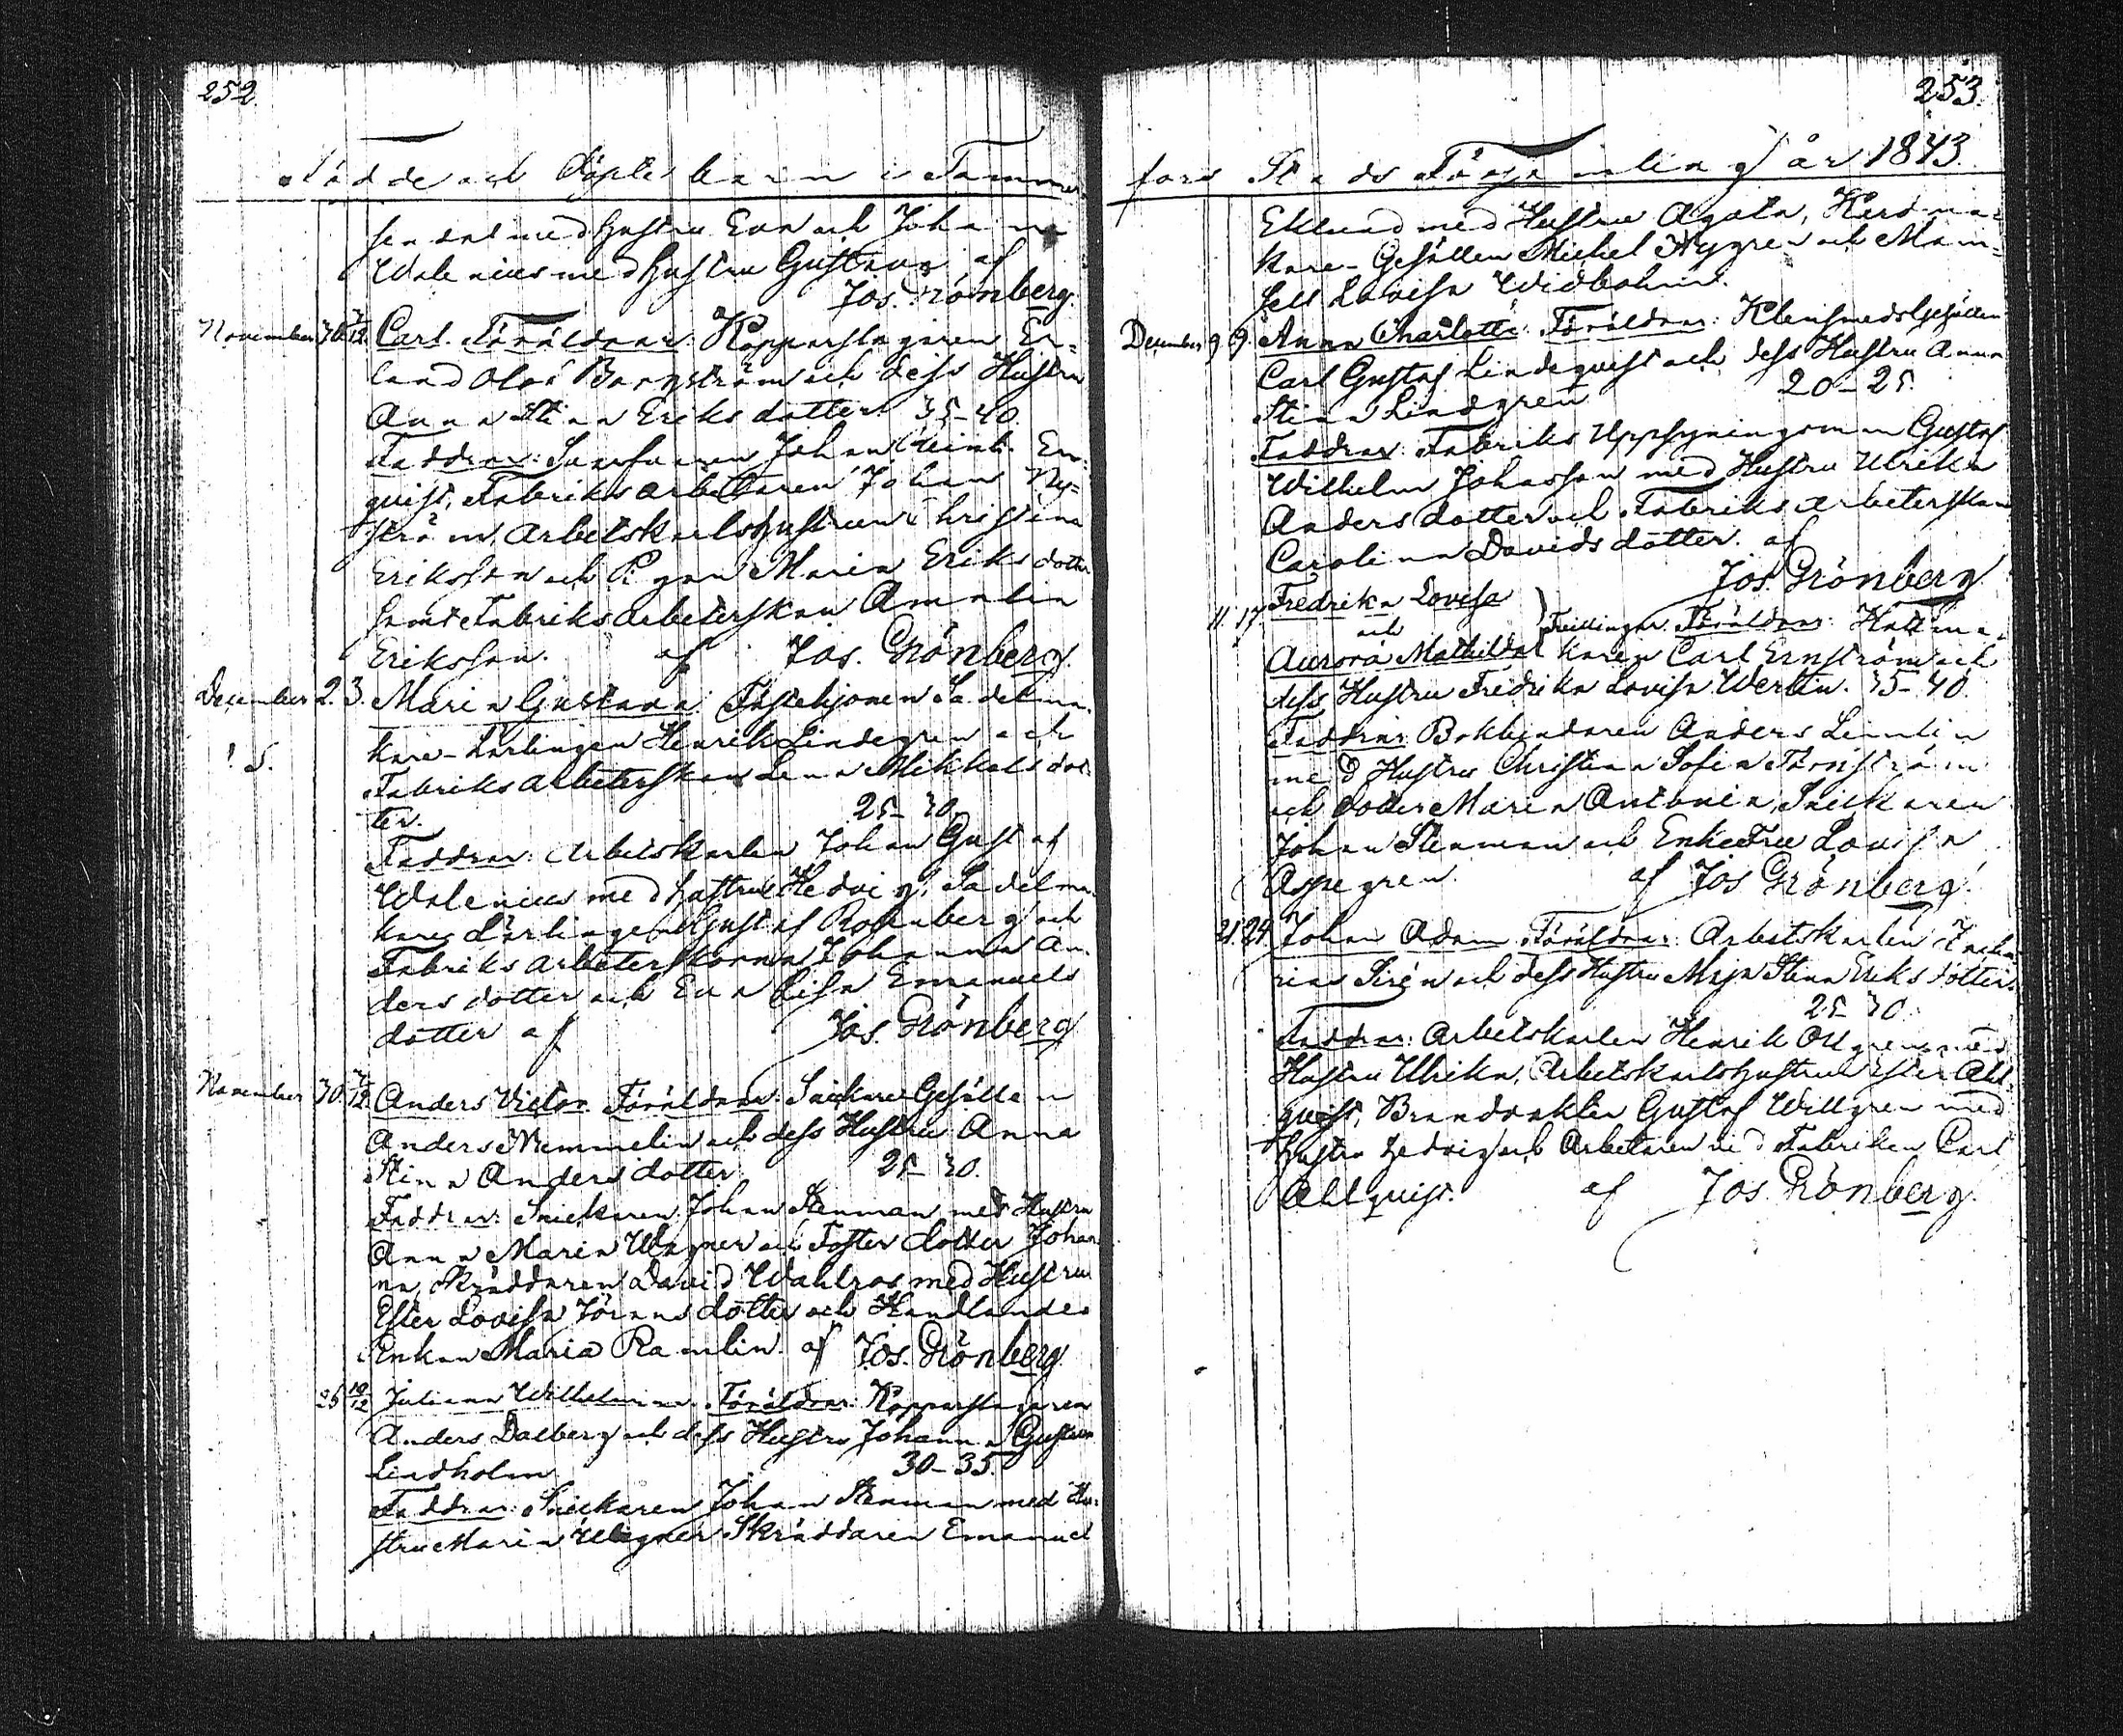 252.
Födde och Döpte barn i Tammer
sendal med Hustru Eva och Johan
Walenius med Hustru Gustava af
Jos. Grönberg.
November 30. 3/12. Carl. Föräldrar: Kopparslagaren Er-
land Olof Bergström och dess Hustru
Anna Stina Eriksdotter 35-40.
Faddrar: Johan En-
quist, Fabriksarbetaren Johan Ny-
ström, Arbetskarlshustrun Christina
Eriksson och Pigan Maria Eriksdotter
samt Fabriksarbeterskan Amalia
Eriksson. af Jos. Grönberg.
December 2. 3. Maria Gustava: Sadelma-
kare-Lärlingen Henrik Lindegren och
Fabriksarbeterskan Lena Mikkelsdot-
ter. 25-30.
! S.
Faddrar: Arbetskarlen Johan Gustaf
Walenius med hustru Hedvig, Sadelma-
kare Lärlingen Gustaf Rosenberg och
Fabriksarbeterskorna Johanna An-
dersdotter och Eva Lisa Emanuels
dotter af Jos. Grönberg
November 30. 3/12. Anders Victor. Föräldrar: Snickare Gesällen
Anders Nemmelin och dess Hustru Anna
Stina Andersdotter 25-30.
Faddrar: Snickaren Johan Stenman med Hustru
Anna Maria Wagner och Foster dotter Johan
na, Skräddaren David Wahlros med Hustru
Ester Lovisa Göransdotter och Handlandes
Enkan Maria Ramlin. af Jos. Grönberg.
26 10/12 Juliana Wilhelmina. Föräldrar: Kopparslagaren
Anders Dalberg och dess Hustru Johanna Gustava
Lindholm 30-35.
Faddrar: Snickaren Johan Stenman med Hu-
stru Maria Wagner Skräddaren Emanuel
253.
fors Stads Församling år 1843.
Eklund med Hustru Agata,
kare-Gesällen Michel Nygren och Mam-
sell Lovisa Widbohm.
December 9 9. Anna Charlotta. Föräldrar: Klensmedsgesällen
Carl Gustaf Lindequist och dess Hustru Anna
Stina Lindgren 20-25.
Faddrar: Fabriks Uppsyningsman Gustaf
Wilhelm Johansson med Hustru Ulrika
Andersdotter och Fabriksarbeterskan
Carolina Davidsdotter. af
Jos. Grönberg
11. 17 Fredrika Lovisa
och
Aurora Mathilda } Tvillingar. Föräldrar: Hattma-
karen Carl Ernström och
dess Hustru Fredrika Lovisa Werlin. 35-40.
Faddrar: Bokbindaren Anders Lenelin
med Hustru Christina Sofia Törnström
och dotter Maria Antonia, Snickaren
Johan Stenman och EnkeFru Lovisa
Aspegren. af Jos Grönberg.
21. 24. Johan Adam. Föräldrar: Arbetskarlen Zacha
rias Sirén och dess Hustru Maja Stina Eriksdotter.
25-30.
Faddrar: Arbetskarlen Henrik Ollgren med
Hustru Ulrika, Arbetskarlshustrun Ester Ahl
quist, Brandvakten Gustaf Willgren med
Hustru Hedvig och Arbetaren vid Fabriken Carl
Ahlquist. af Jos. Grönberg.